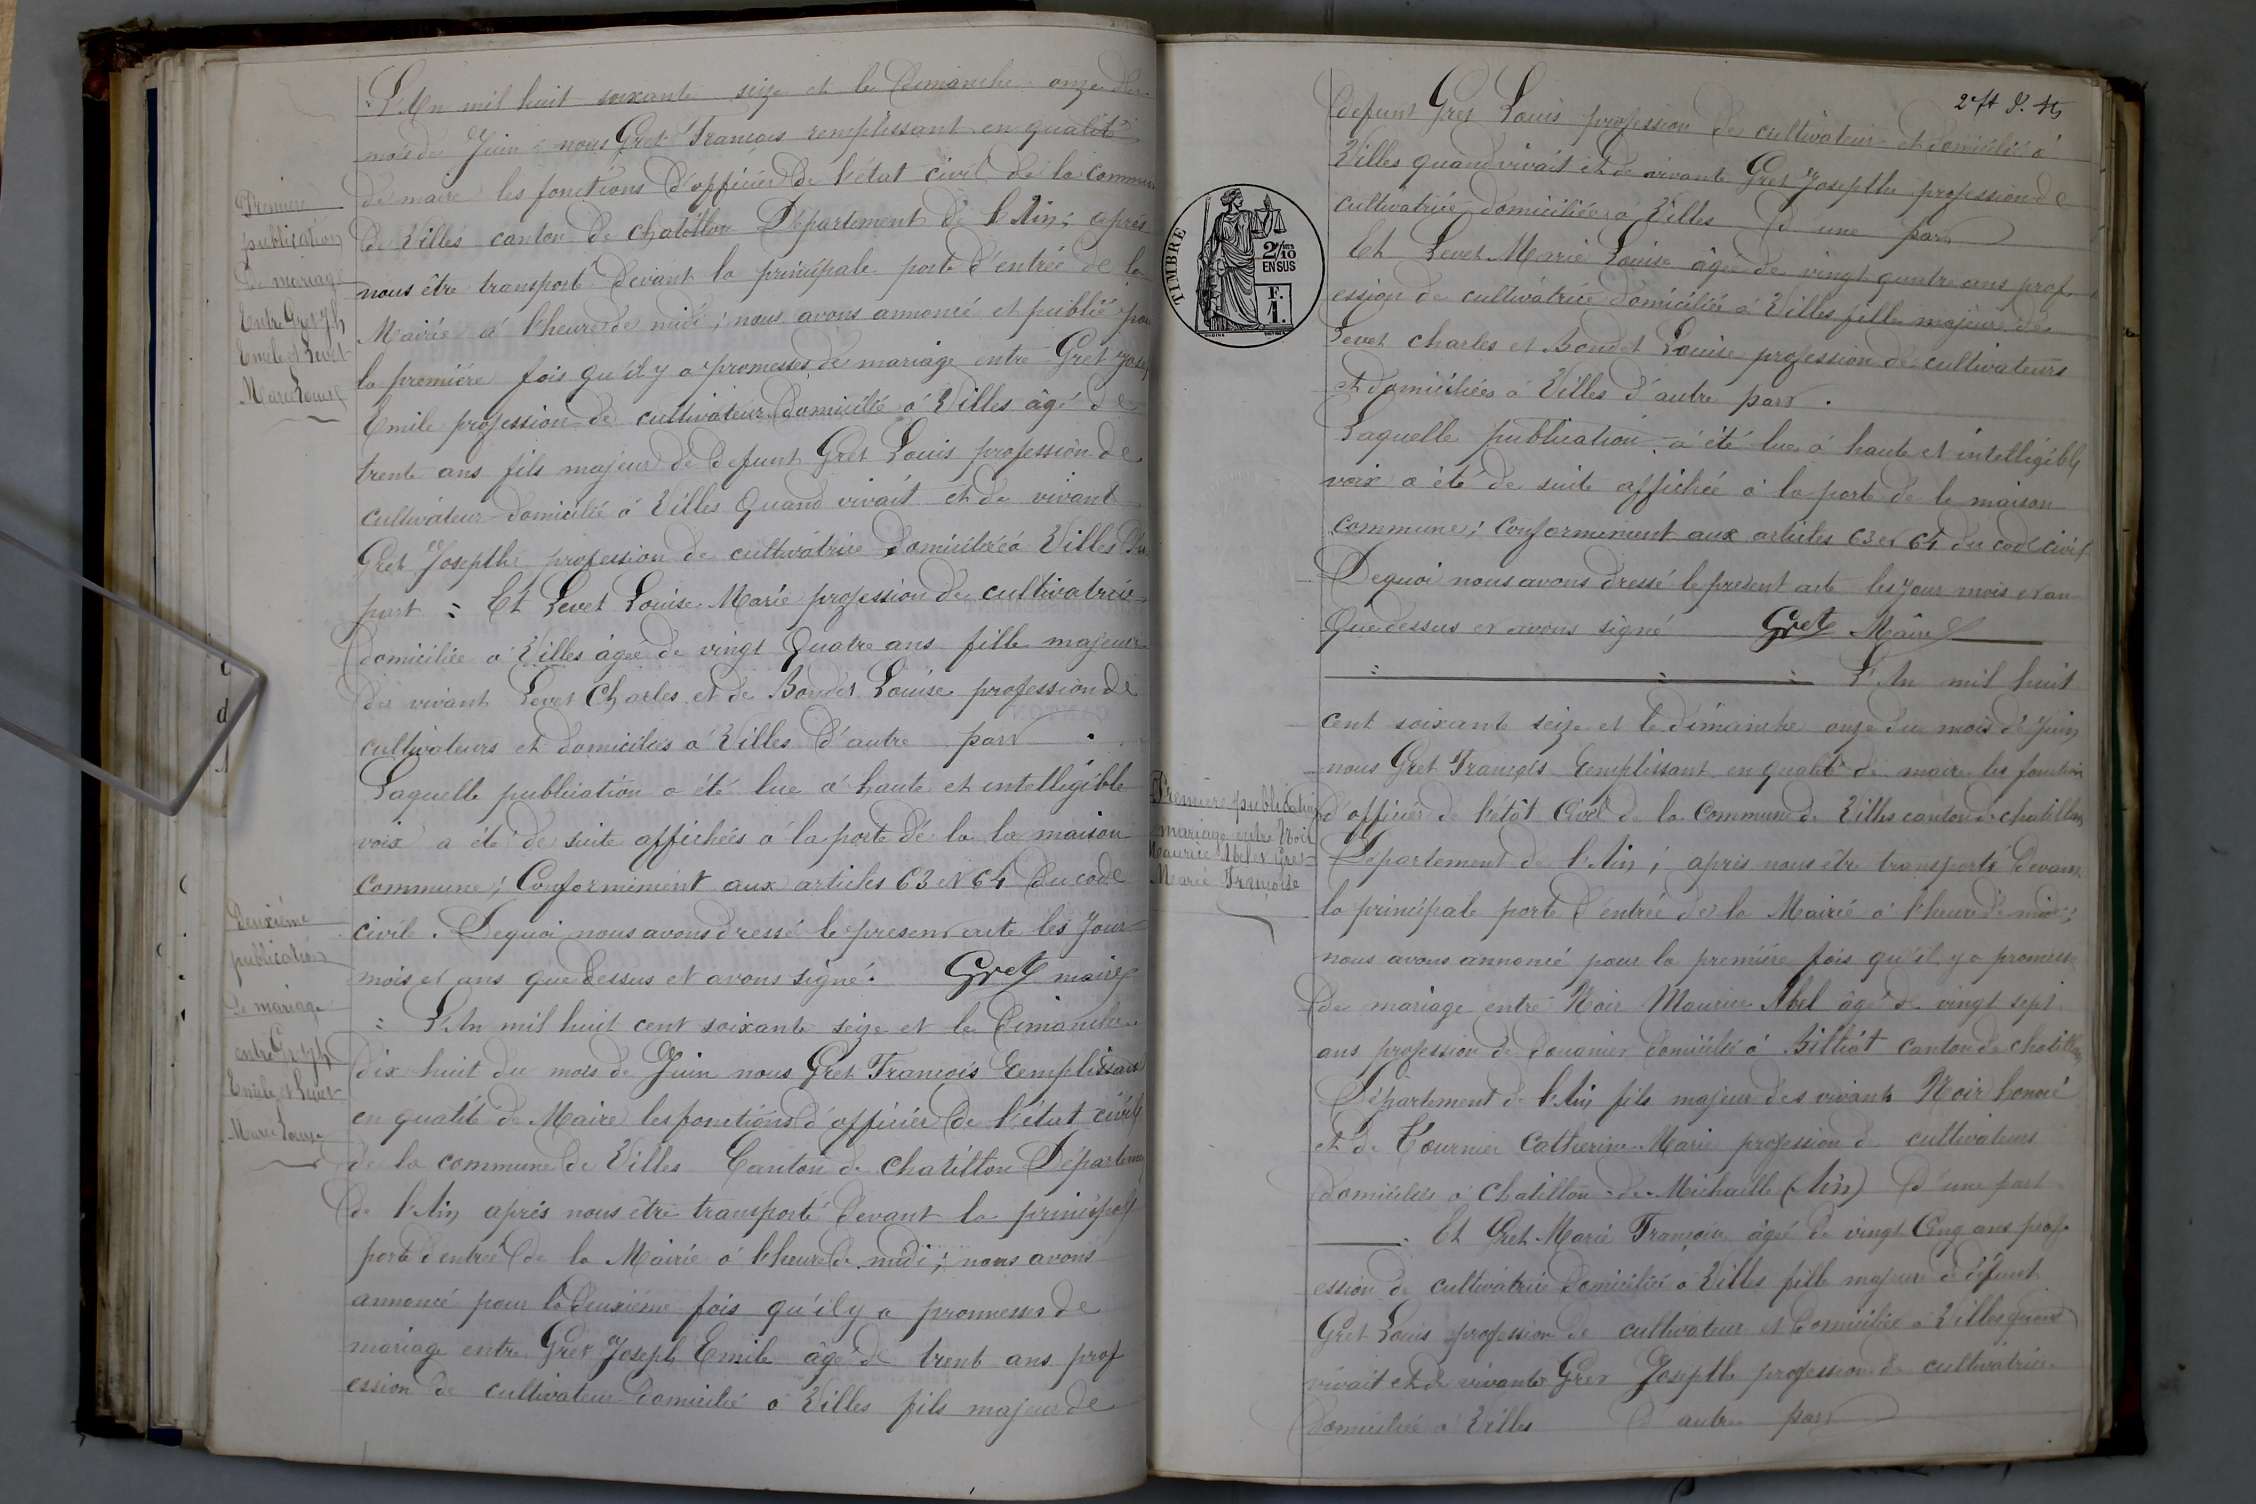 Première
publication
de mariage
Entre Gret Jh
Emile et Levet
Marie Louise
L'An mil huit soixante seize et le Dimanche onze du
mois de Juin nous Gret François remplissant en qualité
de maire les fonctions d'officier de l'état civil de la commune
de Villes canton de Chatillon Département de l'Ain ; après
nous être transporté devant la principale porte d'entrée de la
Mairie à l'heure de midi ; nous avons annoncé et publié pour
la première fois qu'il y a promesses de mariage entre Gret Joseph
Emile profession de cultivateur domicilié à Villes âgé de
trente ans fils majeur de defunt Gret Louis profession de
cultivateur domicilié à Villes quand vivait et de vivant
Gret Josepthe profession de cultivatrice domiciliée à Villes d'une
part = Et Levet Louise Marie profession de cultivatrice
domiciliée à Villes âgée de vingt quatre ans fille majeure
des vivant Levet Charles et de Boudet Louise profession de
cultivateurs et domiciliés à Villes d'autre part .
Laquelle publication a été lue à haute et intelligible
voix a été de suite affichées à la porte de la la maison
commune ; Conformément aux articles 63 et 64 du code
civil . Dequoi nous avons dressé le present acte les jour
mois et ans que dessus et avons signé . Gret maire
Deuxième
publication
de mariage
entre Gret Jh
Emile et Levet
Marie Louise
= L'An mil huit cent soixante seize et le Dimanche
dix huit du mois de Juin nous Gret François Remplissant
en qualité de Maire les fonctions d'officier de l'état civil
de la commune de Villes Canton de Chatillon Département
de l'Ain après nous être transporté devant la principale
porte d'entrée de la Mairie à l'heure de midi ; nous avons
annoncé pour la deuxième fois qu'il y a promesses de
mariage entre Gret Joseph Emile âgé de trent ans prof
ession de cultivateur domicilié à Villes fils majeur de
TIMBRE
2/10
EN SUS
F.
1.
defunt Gret Louis profession de cultivateur et domicilié à
Villes quand vivait et de vivante Gret Josepthe profession de
cultivatrice domiciliée à Villes d'une part
Et Levet Marie Louise âgée de vingt quatre ans prof
ession de cultivatrice domiciliée à Villes fille majeure de
Levet charles et Boudet Louise profession de cultivateurs
et domiciliées à Villes d'autre part .
Laquelle publication a été lue à haute et intelligible
voix a été de suite affichée à la porte de le maison
commune ; Conformement aux articles 63 et 64 du code civil
Dequoi nous avons dressé le present acte les jour mois et an
que dessus et avons signé Gret Maire
L'An mil huit
cent soixante seize et le dimanche onze du mois de Juin
nous Gret François Remplissant en qualité de maire les fonction
d'officier de l'état Civil de la Commune de Villes canton de chatillon
Première publication
mariage entre Noir
Maurice Abel et Gret
Marie Françoise
Département de l'Ain ; après nous être transporté devant
la principale porte d'entrée de la Mairie à l'heure de midi ;
nous avons annoncé pour la première fois qu'il y a promesse
de mariage entre Noir Maurice Abel âgé de vingt sept
ans profession de douanier domicilié à Billiat canton de chatillon
Département de l'Ain fils majeur des vivants Noir honoré
et de Tournier Catherine Marie profession de cultivateurs
domiciliés à Chatillon-de-Michaille (Ain) d'une part
Et Gret Marie Françoise âgée de vingt Cinq ans prof
ession de cultivatrice domiciliée à Villes fille majeure de défunt
Gret Louis profession de cultivateur et domicilié à Villes quand
vivait et de vivante Gret Josepthe profession de cultivatrice
domiciliée à Villes d'autre part